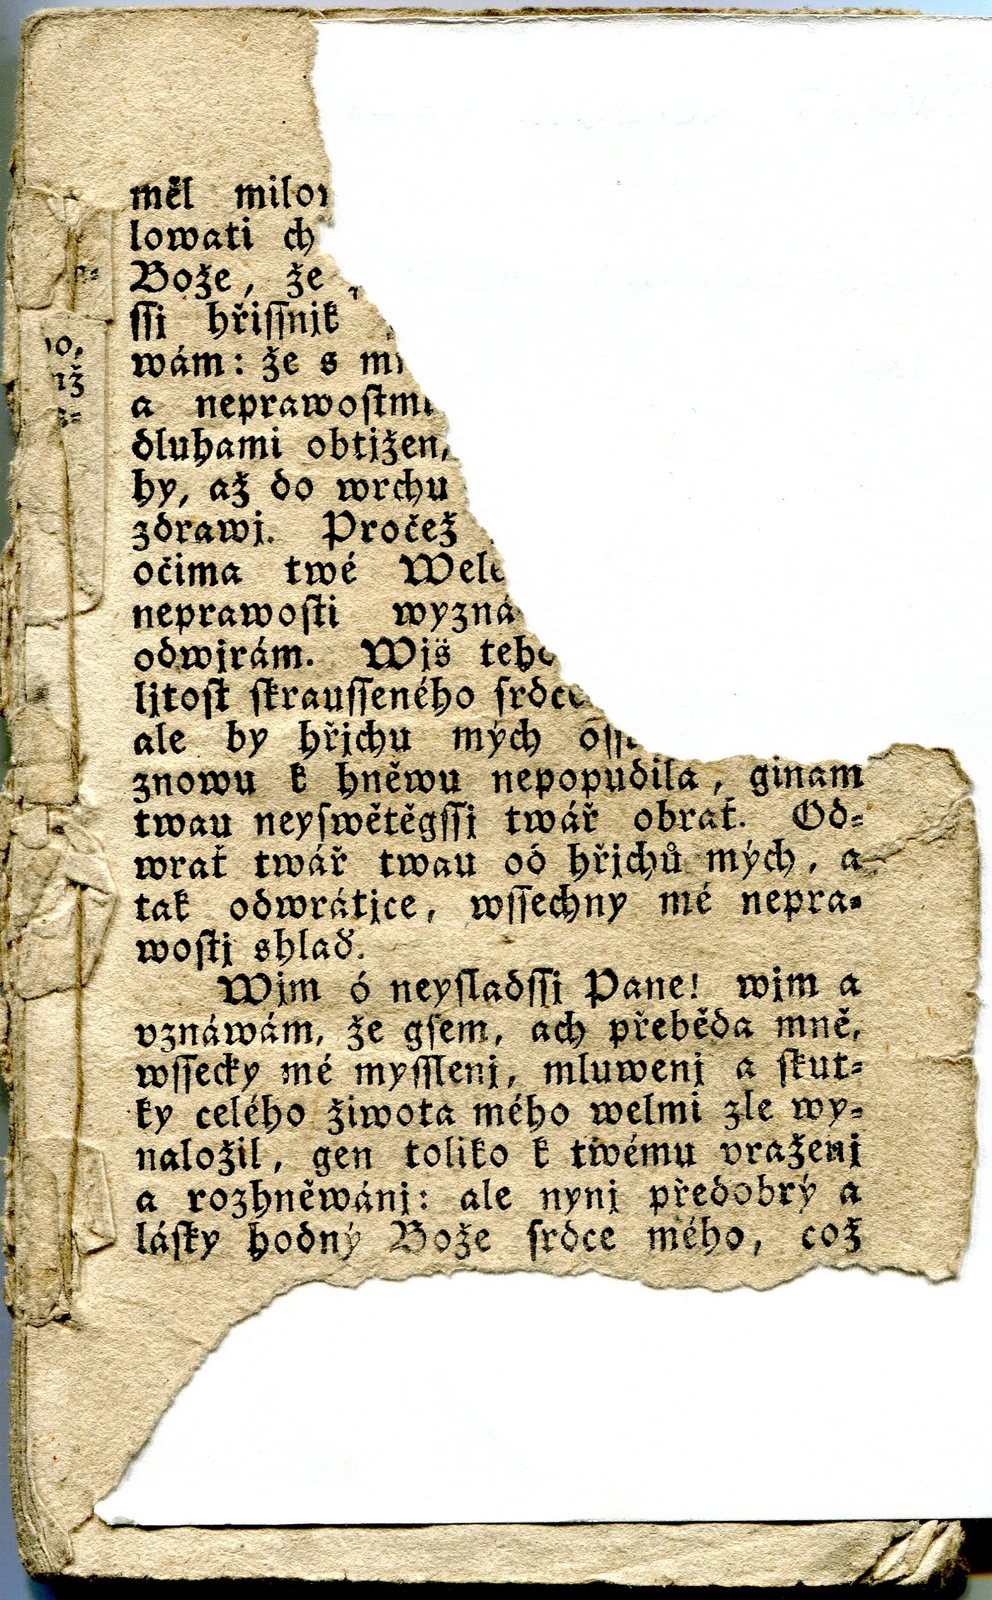 měl
lowati
Bože, že
ſſj hřiſſnjk
wám: že s
a neprawoſtmi
dluhami obtjžen,
hy, až do wrchu
zdrawj. Pročež
očima twé
neprawoſti
odwjrám. Wjš
ljtoſt ſkrauſſeného ſrdce
ale by hřjchu mých
znowu k hněwu nepopudila, ginam
twau neyſwětěgſſj twář obrať. Od=
wrať twář twau od hřjchů mých, a
tak odwrátjce, wſſechny mé nepra=
woſtj shlaď.
Wjm ó neyſladſſi Pane! wjm a
vznáwám, že gſem, ach přeběda mně,
wſſecky mé myſſlenj, mluwenj a ſkut=
ky celého žiwota mého welmi zle wy=
naložil, gen toliko k twému vraženj
a rozhněwánj: ale nynj předobrý a
láſky hodný Bože ſrdce mého, což